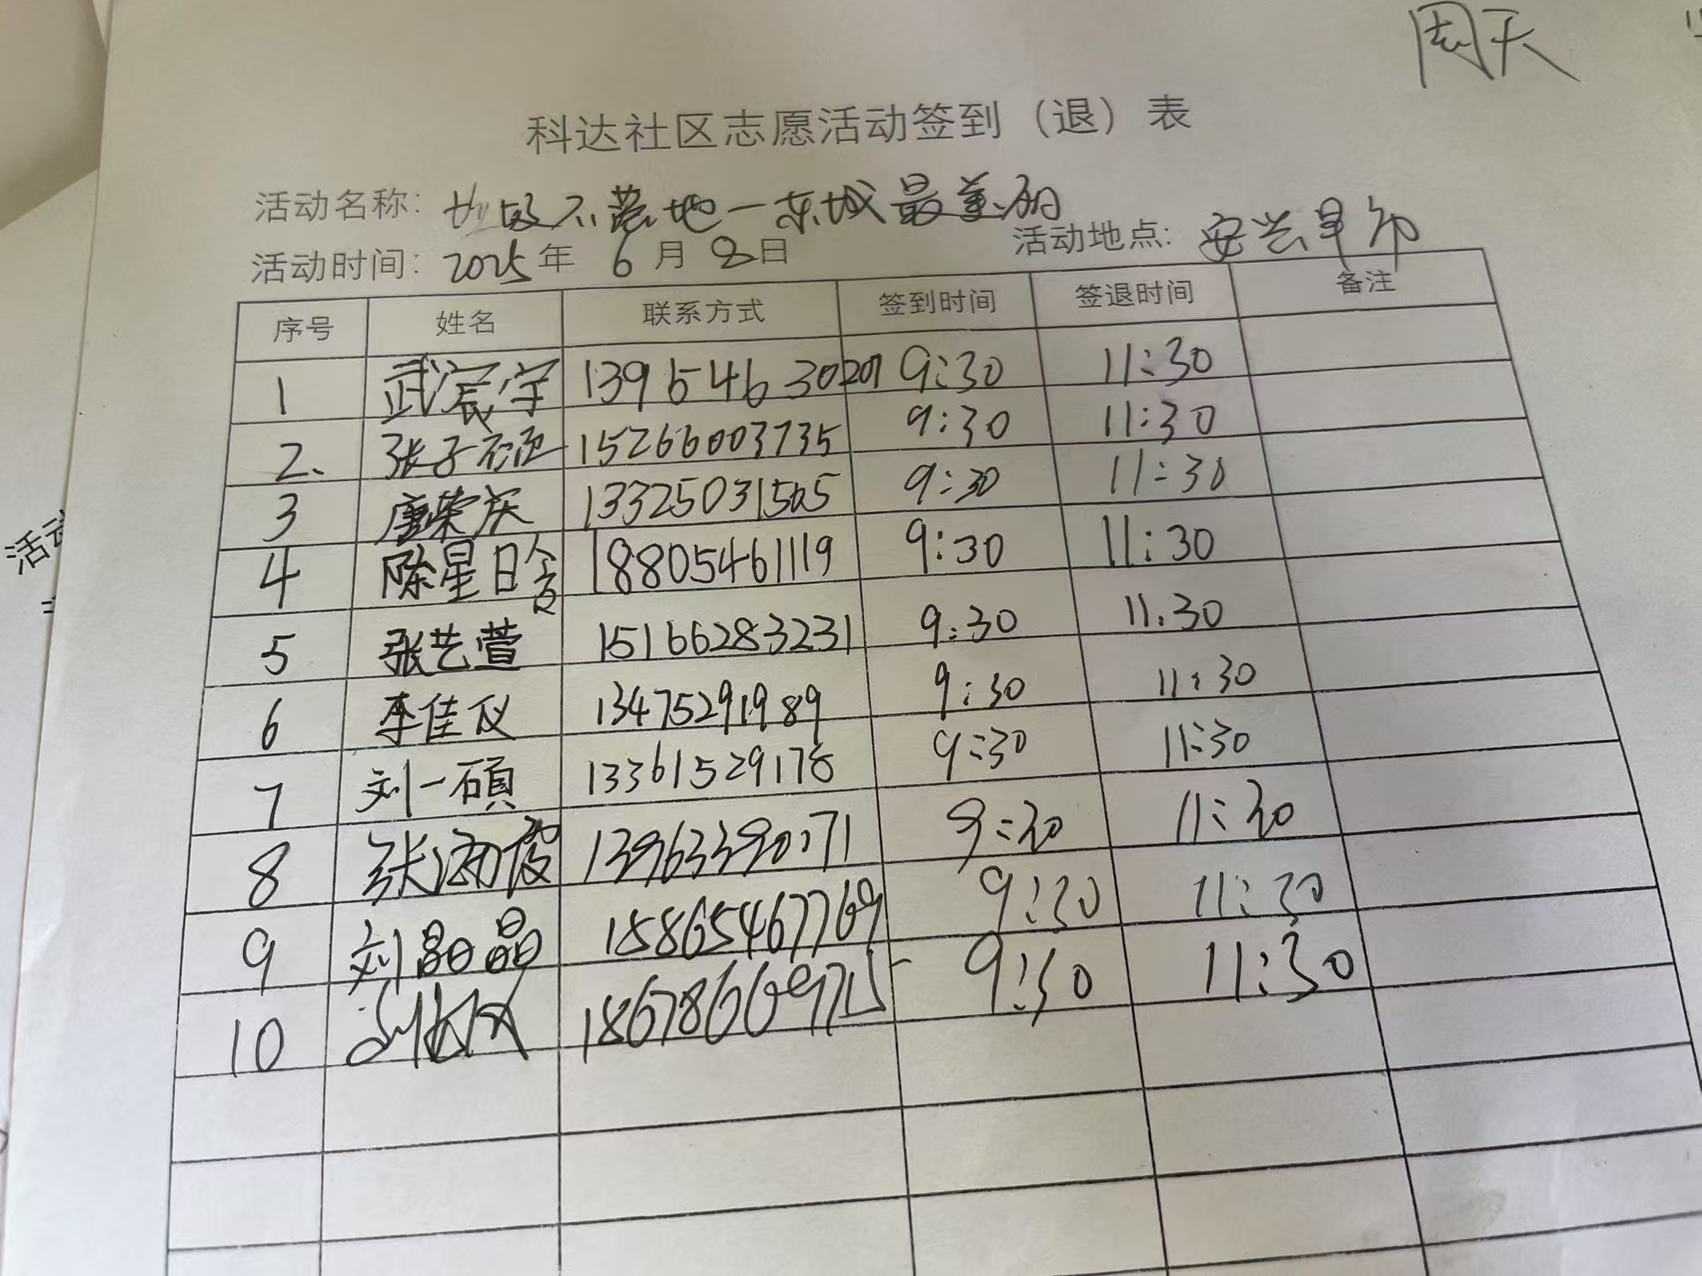 周天
科达社区志愿活动签到（退）表
活动名称：垃圾不落地一东城最美丽
活动时间：2025年 6月 8日 活动地点：安兴早市
序号 姓名 联系方式 签到时间 签退时间 备注
1 武宸宇 13954630201 9:30 11:30
2、 张子 15266003735 9:30 11:30
3 唐荣庆 13325031565 9:30 11:30
4 陈星晗 18805461119 9:30 11:30
5 张艺萱 15166283231 9:30 11:30
6 李佳仪 13475291989 9:30 11:30
7 刘一碩 13361529178 9:30 11:30
8 张 霞 13963390171 9:30 11:30
9 刘晶晶 15865467769 9:30 11:30
10 9:30 11:30
活动